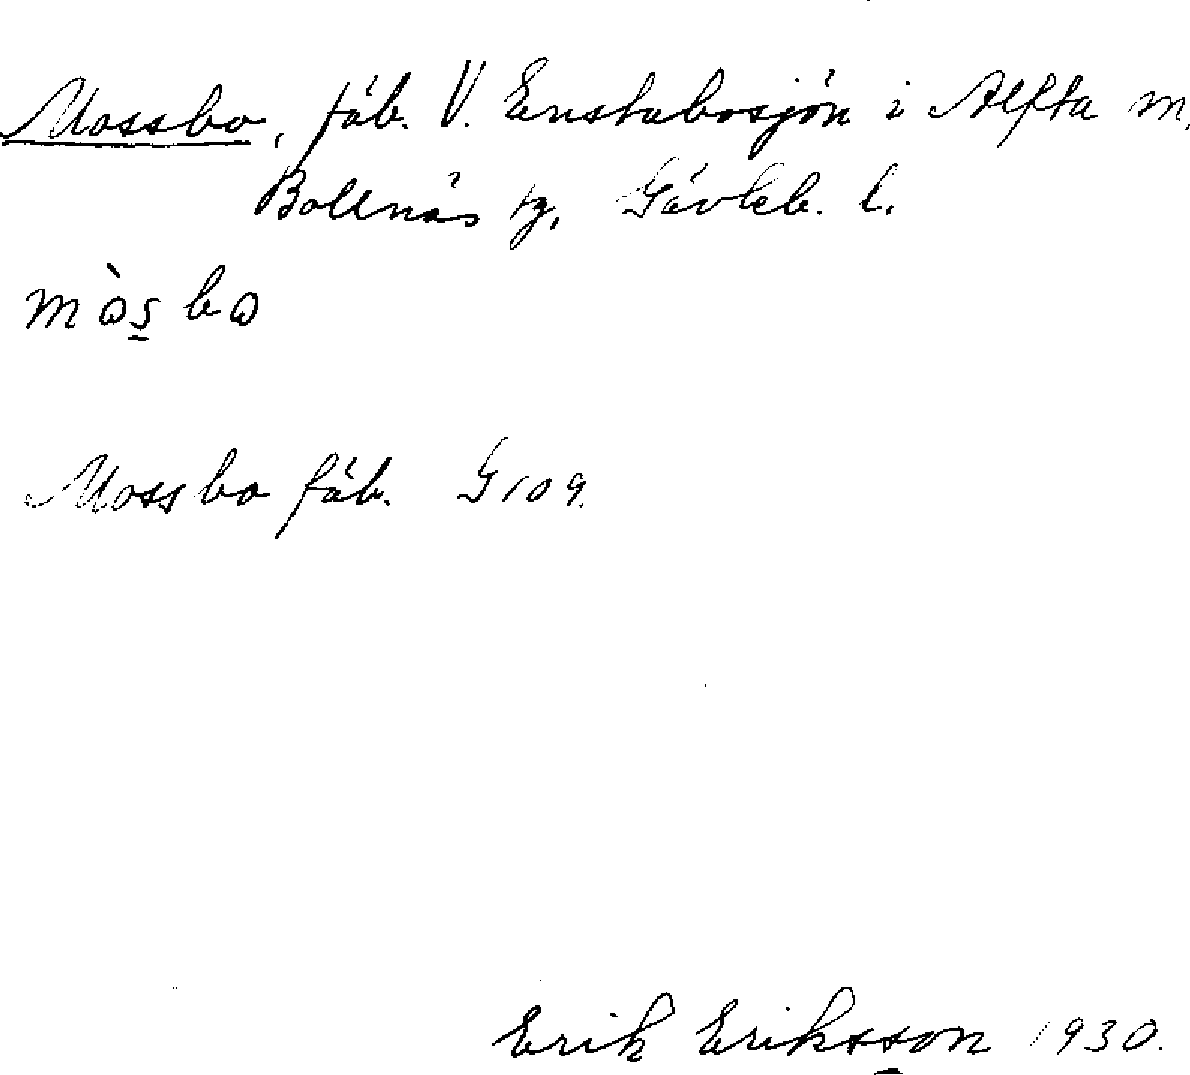 Mossbo, fäb. V. Enstabosjön i Alfta sn,
Bollnäs tg, Gävleb. l.
mòs̱bo
Mossbo fäb. G 109.
Erik Eriksson 1930.